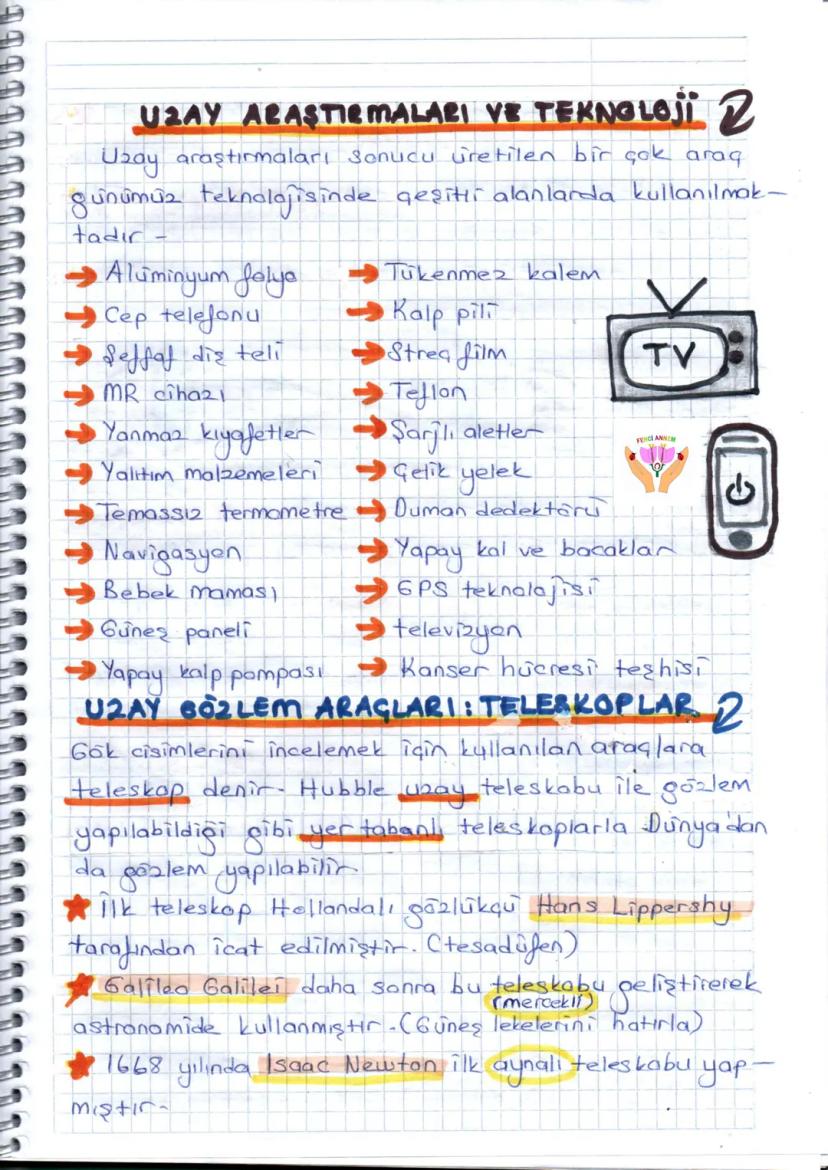 UZAY ARAŞTIRMALARI VE TEKNOLOJİ
Uzay araştırmaları sonucu üretilen bir çok araç
günümüz teknolojisinde çeşitli alanlarda kullanılmak-
tadır.
Alüminyum folyo
Tükenmez kalem
Cep telefonu
Kalp pili
Şeffaf diş teli
Streç film
MR cihazı
Teflon
Yanmaz kıyafetler
Şarjlı aletler
Yalıtım malzemeleri
Çelik yelek
Temassız termometre
Duman dedektörü
Navigasyon
Yapay kol ve bacaklar
Bebek maması
GPS teknolojisi
Güneş paneli
televizyon
Yapay kalp pompası
Kanser hücresi teşhisi
TV
FENCİ ANNEM
UZAY GÖZLEM ARAÇLARI: TELESKOPLAR
Gök cisimlerini incelemek için kullanılan araçlara
teleskop denir. Hubble uzay teleskobu ile gözlem
yapılabildiği gibi yer tabanlı teleskoplarla Dünya'dan
da gözlem yapılabilir.
İlk teleskop Hollandalı gözlükçü Hans Lippershy
tarafından icat edilmiştir. (tesadüfen)
Galileo Galilei daha sonra bu teleskobu geliştirerek
(mercekli)
astronomide kullanmıştır. (Güneş lekelerini hatırla)
1668 yılında Isaac Newton ilk aynalı teleskobu yap-
mıştır.